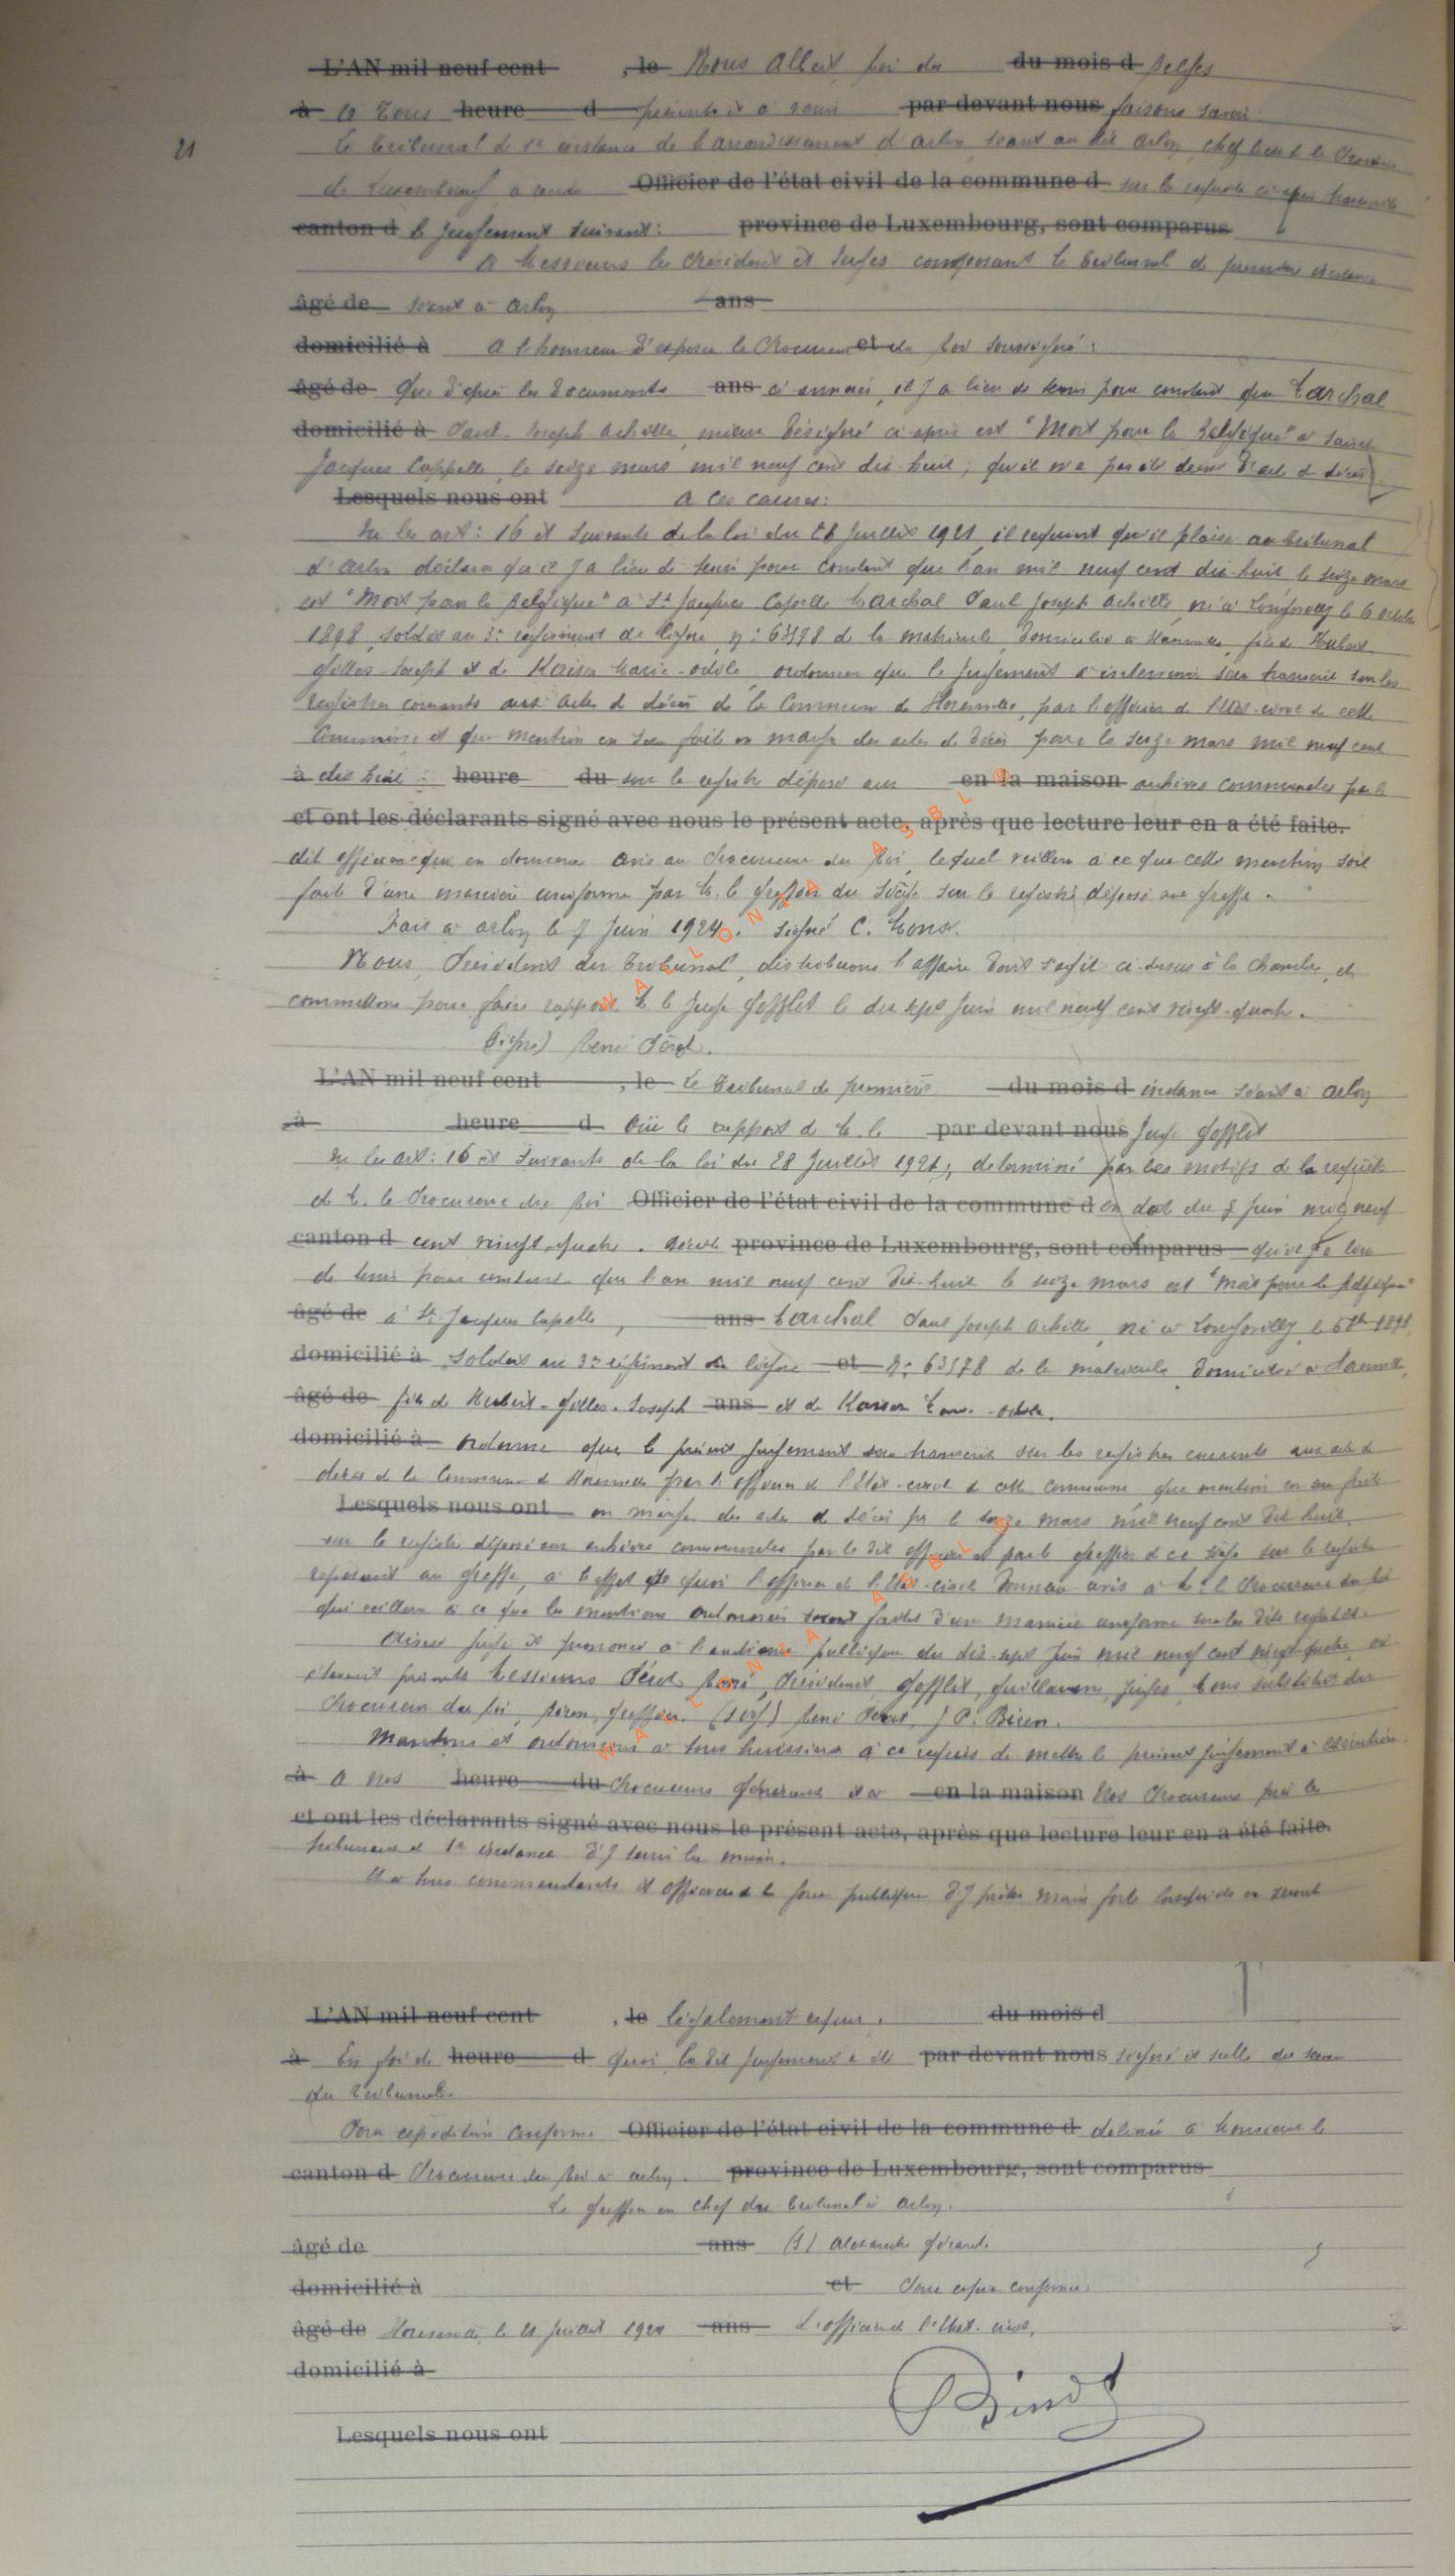 L'AN mil neuf cent , le Nous Albert Roi des du mois d Belges
à à Tous heure d présents et à venir par devant nous faisons savoir
21
Le tribunal de 1e instance de l'arrondissement d'Arlon, séant au dit Arlon, chef lieu de la Province
de Luxembourg a rendu Officier de l'état civil de la commune d sur la requête ci-après transcrite
canton d le jugement suivant: province de Luxembourg, sont comparus
A Messieurs les Président et Juges composant le tribunal de première instance
âgé de séant à Arlon ans
domicilié à A l'honneur d'exposer le Procureur et du Roi soussigné:
âgé de Que d'après les documents ans ci annexés, il y a lieu de tenir pour constant que Marchal
domicilié à Paul Joseph Achille, mieux désigné ci après est "Mort pour la Belgique" à Saint
Jacques Cappelle, le seize mars mil neuf cent dix huit; qu'il n'a pas été dressé d'acte de décès
Lesquels nous ont A ces causes:
Vu les art: 16 et suivants de la loi du 28 Juillet 1921, il requiert qu'il plaise au tribunal
d'Arlon déclarer qu'il y a lieu de tenir pour constant que l'an mil neuf cent dix-huit, le seize mars
est "Mort pour la Belgique" à St Jacques Capelle Marchal Paul Joseph Achille, né à Longvilly le 6 octobre
1898, soldat au 3e régiment de ligne, n: 63178 de la matricule, domicilié à , fils de Hubert
Gilles-Joseph et de Kaiser Marie-Odile, ordonner que le jugement à intervenir sera transcrit sur les
registres courants aux actes de décès de la Commune de , par l'officier de l'Etat-civil de cette
Commune et que mention en sera faite en marge des actes de décès pour le seize mars mil neuf cent
à dix huit heure du sur le registre déposé aux en la maison archives communales par le
et ont les déclarants signé avec nous le présent acte, après que lecture leur en a été faite.
dit officier que en donnera avis au Procureur du Roi, lequel veillera à ce que cette mention soit
faite d'une manière uniforme par M. le greffier du siège sur le registre déposé au greffe.
Fait à Arlon le 7 Juin 1924. signé C. Tons.
Nous, Président du Tribunal, distribuons l'affaire dont s'agit ci-dessus à la chambre, et
commettons pour faire rapport M le Juge Gofflot le dix sept Juin mil neuf cent vingt-quatre.
(Signé) René Pérel.
L'AN mil neuf cent , le Le tribunal de première du mois d instance séant à Arlon
à heure d Ouï le rapport de M. le par devant nous Juge Gofflot
Vu les art: 16 et suivants de la loi du 28 Juillet 1921, déterminé par les motifs de la requête
de M. le Procureur du Roi Officier de l'état civil de la commune d en date du 7 Juin mil neuf
canton d cent vingt quatre. Décide province de Luxembourg, sont comparus qu'il y a lieu
de tenir pour constant que l'an mil neuf cent dix-huit le seize mars est "Mort pour la Belgique"
âgé de à St Jacques Capelle, ans Marchal Paul Joseph Achille, né à Longvilly, le 6 8bre 1898,
domicilié à soldat au 3e régiment de ligne et n: 63178 de la matricule domicilié à
âgé de fils de Hubert-Gilles-Joseph ans et de Kaiser Marie-Odile.
domicilié à Ordonne que le présent jugement sera transcrit sur les registres courants aux actes de
décès de la Commune de par l'officier de l'Etat-civil de cette commune, que mention en sera faite
Lesquels nous ont en marge des actes de décès pr le seize mars mil neuf cent dix huit,
sur le registre déposé aux archives communales par le dit officier et par le greffier de ce siège sur le registre
reposant au greffe, à l'effet de quoi l'officier de l'Etat-civil donnera avis à M. le Procureur du Roi
qui veillera à ce que les mentions ordonnées soient faites d'une manière uniforme sur les dits registres.
Ainsi jugé et prononcé à l'audience publique du dix-sept Juin mil neuf cent vingt quatre, où
étaient présents Messieurs Pérel René, Président, Gofflot, Guillaume, juges, Tons substitut du
Procureur du Roi, greffier. (sig) René Pérel, J P.
Mandons et ordonnons à tous huissiers à ce requis de mettre le présent jugement à exécution.
à A nos heure du Procureurs généraux et à en la maison Nos Procureurs près les
et ont les déclarants signé avec nous le présent acte, après que lecture leur en a été faite.
tribunaux de 1e instance d'y tenir la main.
Et à tous commandants et officiers de la force publique d'y prêter main forte lorsqu'ils en seront
L'AN mil neuf cent , le légalement requis. du mois d
à En foi de heure d quoi le dit jugement a été par devant nous signé et scellé du sceau
du tribunal.
Pour expédition conforme Officier de l'état civil de la commune d délivrée à Monsieur le
canton d Procureur du Roi à Arlon. province de Luxembourg, sont comparus
Le greffier en chef du tribunal à Arlon.
âgé de ans (s) Alexandre Gérard.
domicilié à et Pour copie conforme.
âgé de le 21 Juillet 1924 ans L'officier de l'Etat-civil,
domicilié à
Lesquels nous ont
WALLONIA ASBL ©